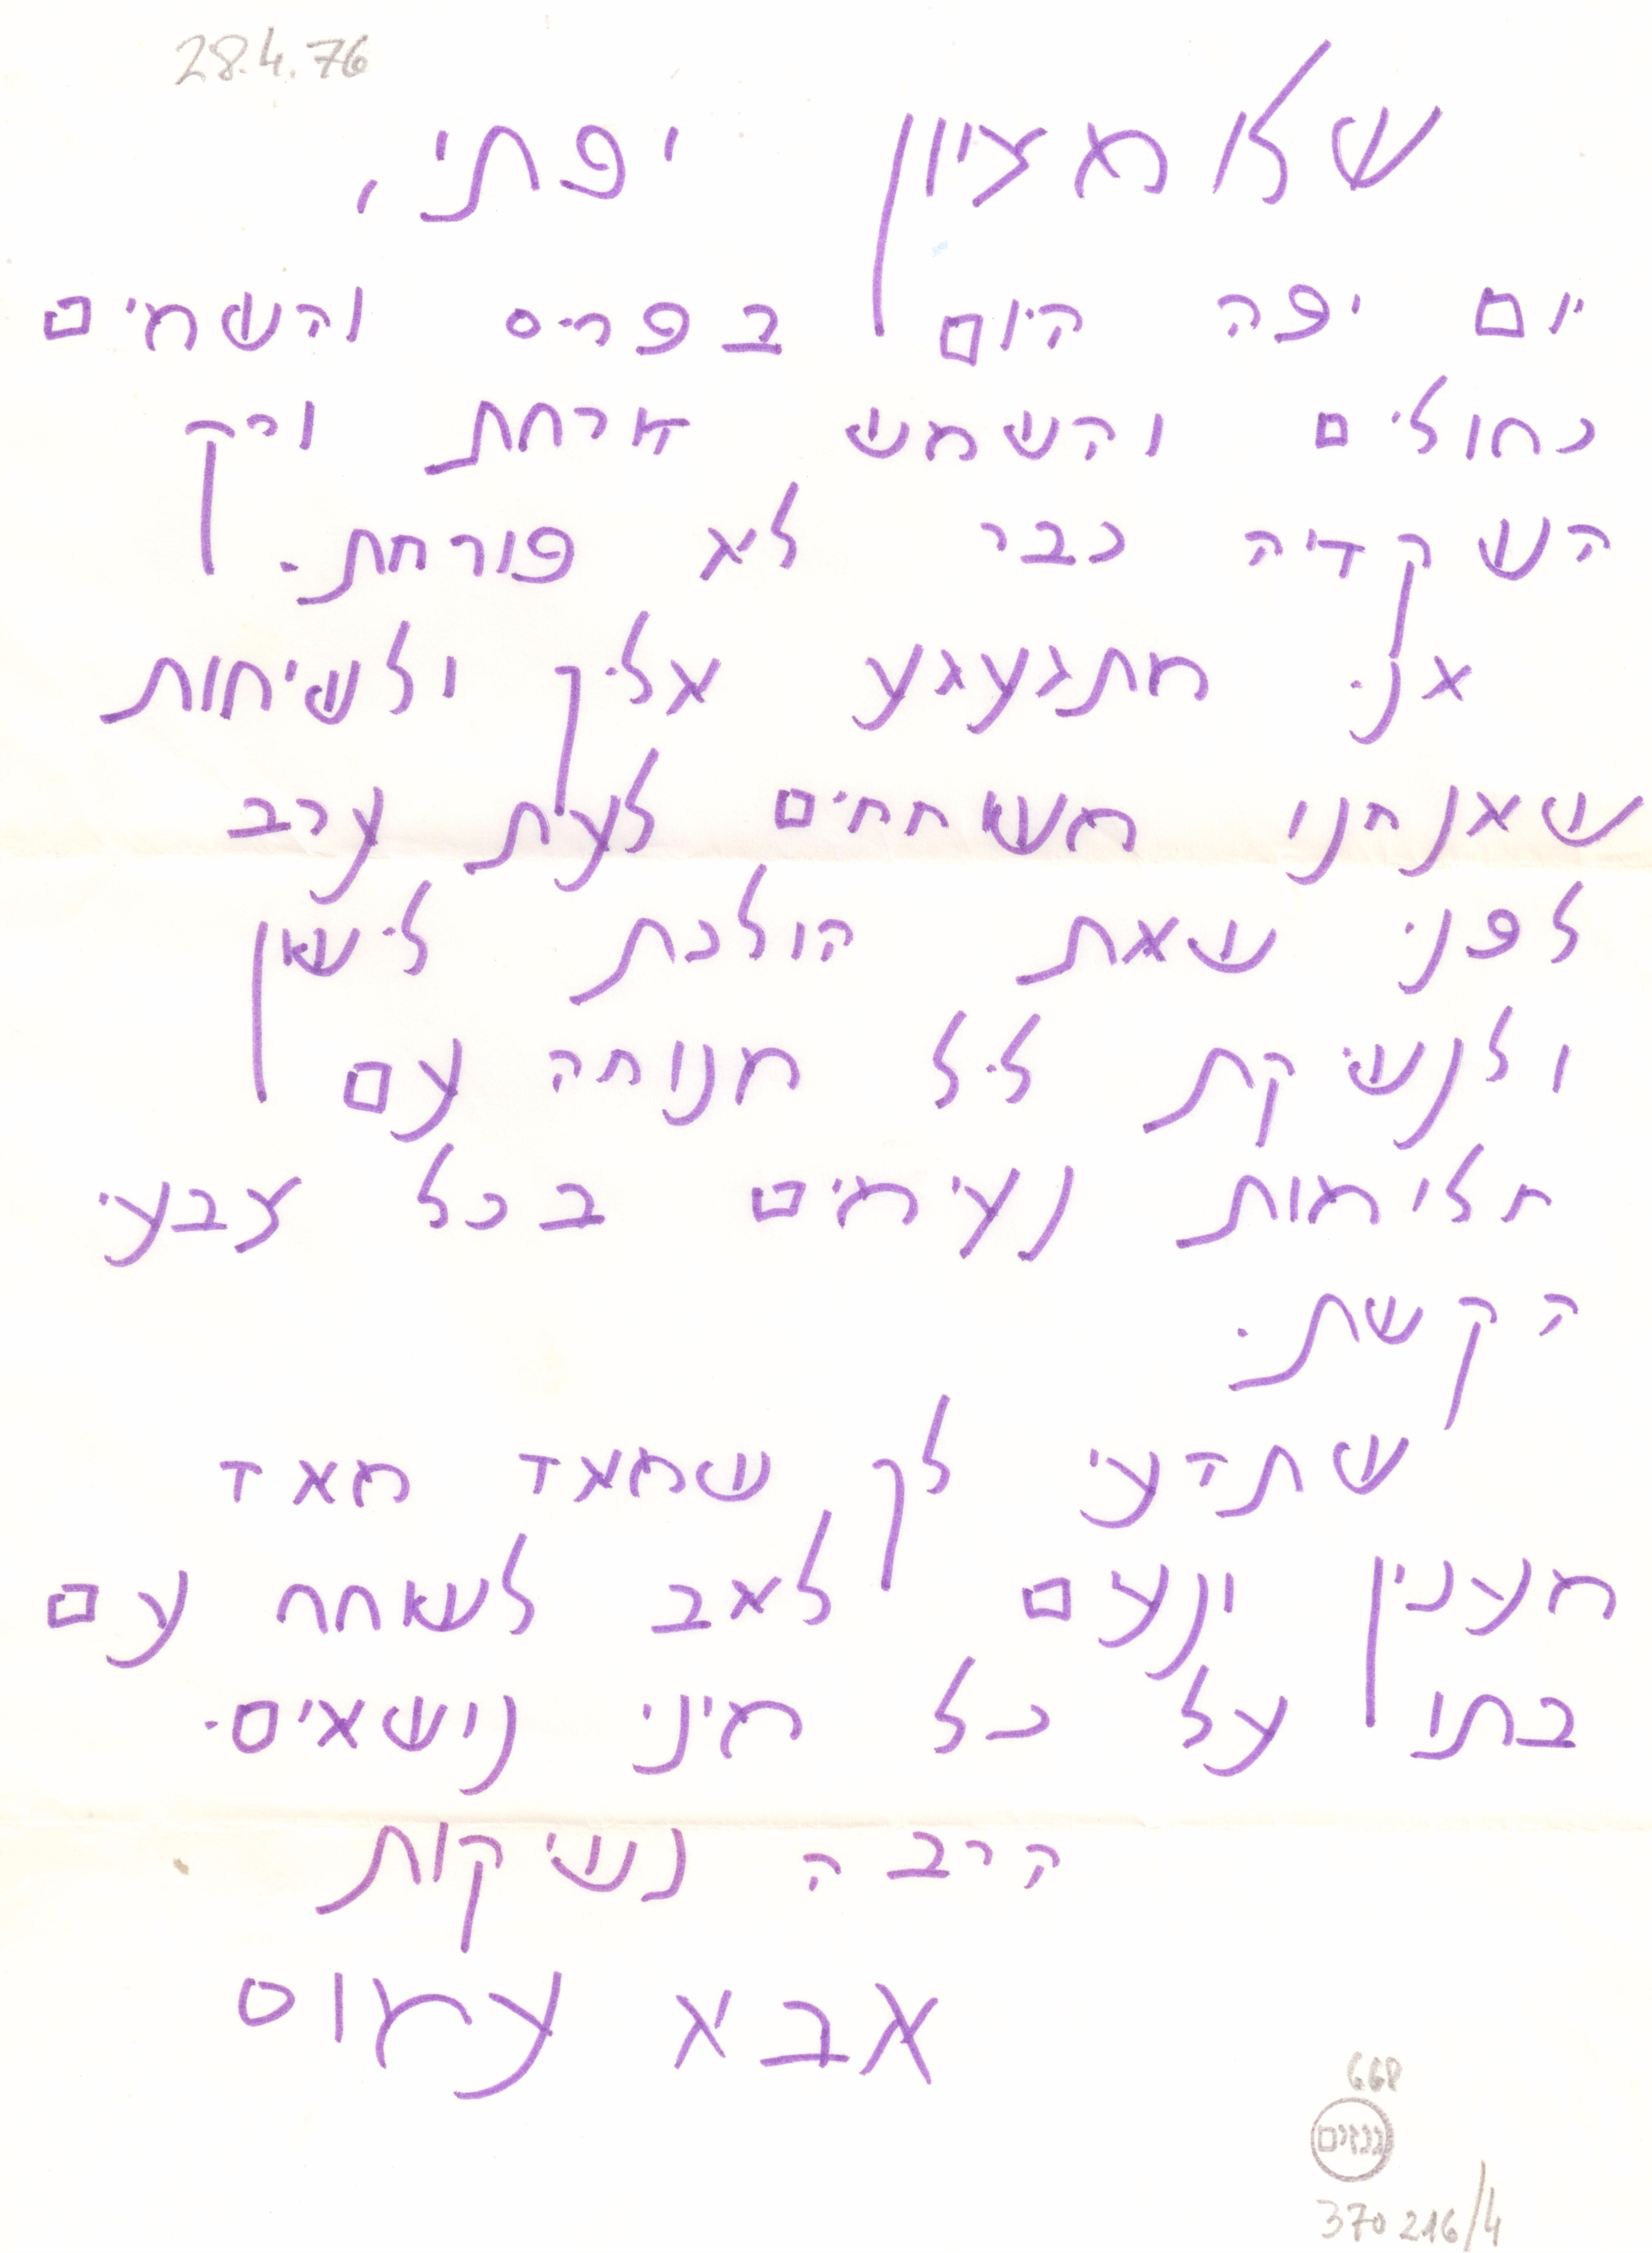 28.4.76
שלומציון יפתי,
יום יפה היום בפריס והשמים
כחולים והשמש זורחת ורק
השקדיה כבר לא פורחת.
אני מתגעגע אליך ולשיחות
שאנחנו משוחחים לעת ערב
לפני שאת הולכת לישון
ולנשיקת ליל מנוחה עם
חלומות נעימים בכל צבעי
הקשת.
שתדעי לך שמאד מאד
מענין ונעים לאב לשוחח עם
בתו על כל מיני נושאים.
הרבה נשיקות
אבא עמוס
668
גנזים
370 216/4